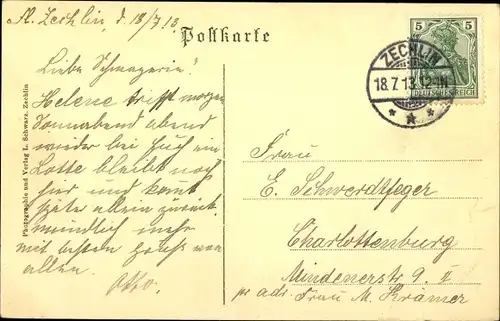 Fl. Zechlin, d. 18/7 13
Postkarte
5 5
DEUTSCHES REICH
ZECHLIN
18.7.13.12-1N.
Liebe Schwägerin!
Helene trifft morgen
Sonnabend abend
wieder bei Euch ein
Lotte bleibt noch
hier und kommt
später allein zurück.
mündlich mehr
mit besten Gruß von
allen.
Otto.
Photographie und Verlag L. Schwarz, Zechlin
Frau
E. Schwerdtfeger
Charlottenburg
Mindenerstr. 9. II
pr adr. Frau M. Krämer